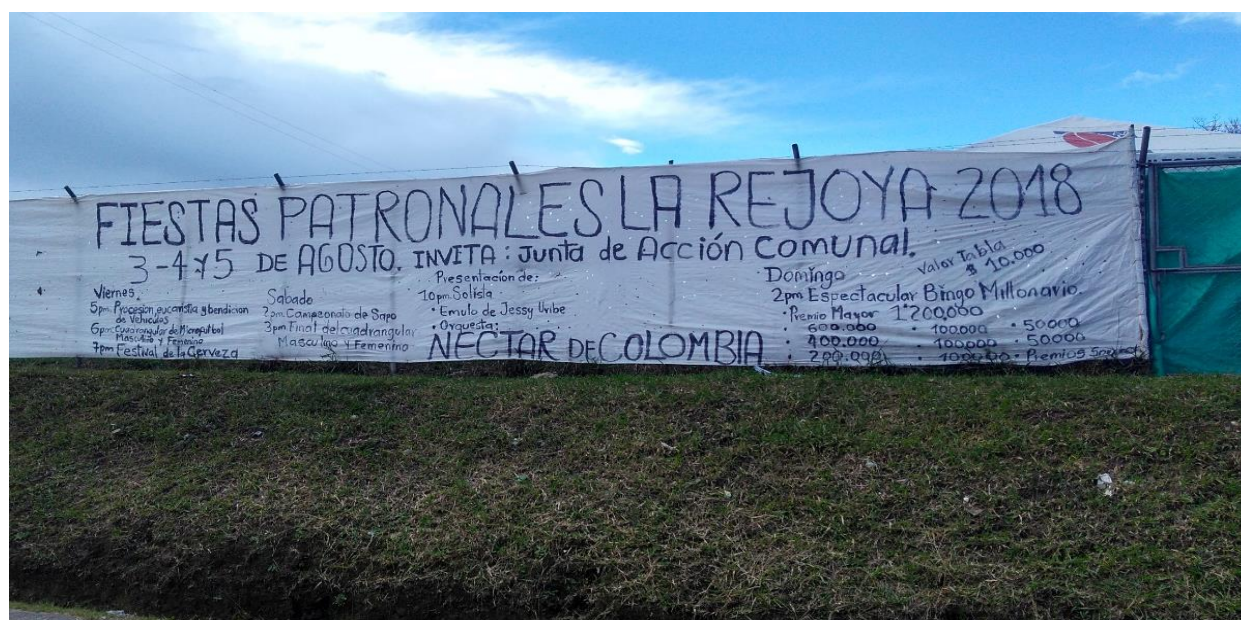 FIESTAS PATRONALES LA REJOYA 2018
3-4 y 5 DE AGOSTO. INVITA: Junta de Acción Comunal.
Viernes.
5pm Procesion, eucaristia y bendicion
de Vehiculos
6pm Cuadrangular de Microfutbol
Masculino y Femenino
7pm Festival de la Cerveza
Sabado
2pm Campeonato de Sapo
3pm Final del cuadrangular
Masculino y Femenino
Presentación de:
10pm Solista
• Emulo de Jessy Uribe
• Orquesta:
NECTAR DE COLOMBIA
Domingo
Valor Tabla
$ 10.000
2pm Espectacular Bingo Millonario.
• Premio Mayor 1'200.000
600.000 • 100.000 • 50000
• 400.000 • 100.000 • 50000
• 200.000 • 100.000 • Premios